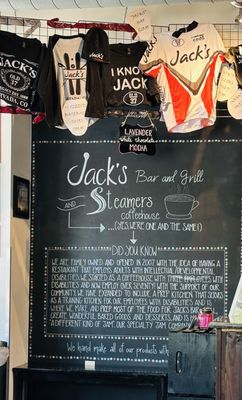 Jack's
Jack's
I KNOW
JACK'S
Jack's
OLD
ARVADA, CO
LAVENDER
white chocolate
MOCHA
Jack's Bar and Grill
and Steamers
coffeehouse
...(YES, WE'RE ONE AND THE SAME!)
DID YOU KNOW
WE ARE FAMILY OWNED AND OPENED IN 2007 WITH THE IDEA OF HAVING A
RESTAURANT THAT EMPLOYS ADULTS WITH INTELLECTUAL/DEVELOPMENTAL
DISABILITIES. WE STARTED AS A COFFEEHOUSE WITH THREE
DISABILITIES AND NOW EMPLOY OVER SEVENTY! WITH THE SUPPORT OF OUR
COMMUNITY WE HAVE EXPANDED TO INCLUDE A PREP KITCHEN THAT DOUBLES
AS A TRAINING KITCHEN FOR OUR EMPLOYEES WITH DISABILITIES AND IS
WHERE WE MAKE AND PREP MOST OF THE FOOD FOR JACK'S BAR AND
CREATE WONDERFUL BAKED GOODS AND DESSERTS, AND IS
A DIFFERENT KIND OF JAM, OUR SPECIALTY JAM COMPANY
We hand make all of our products wi